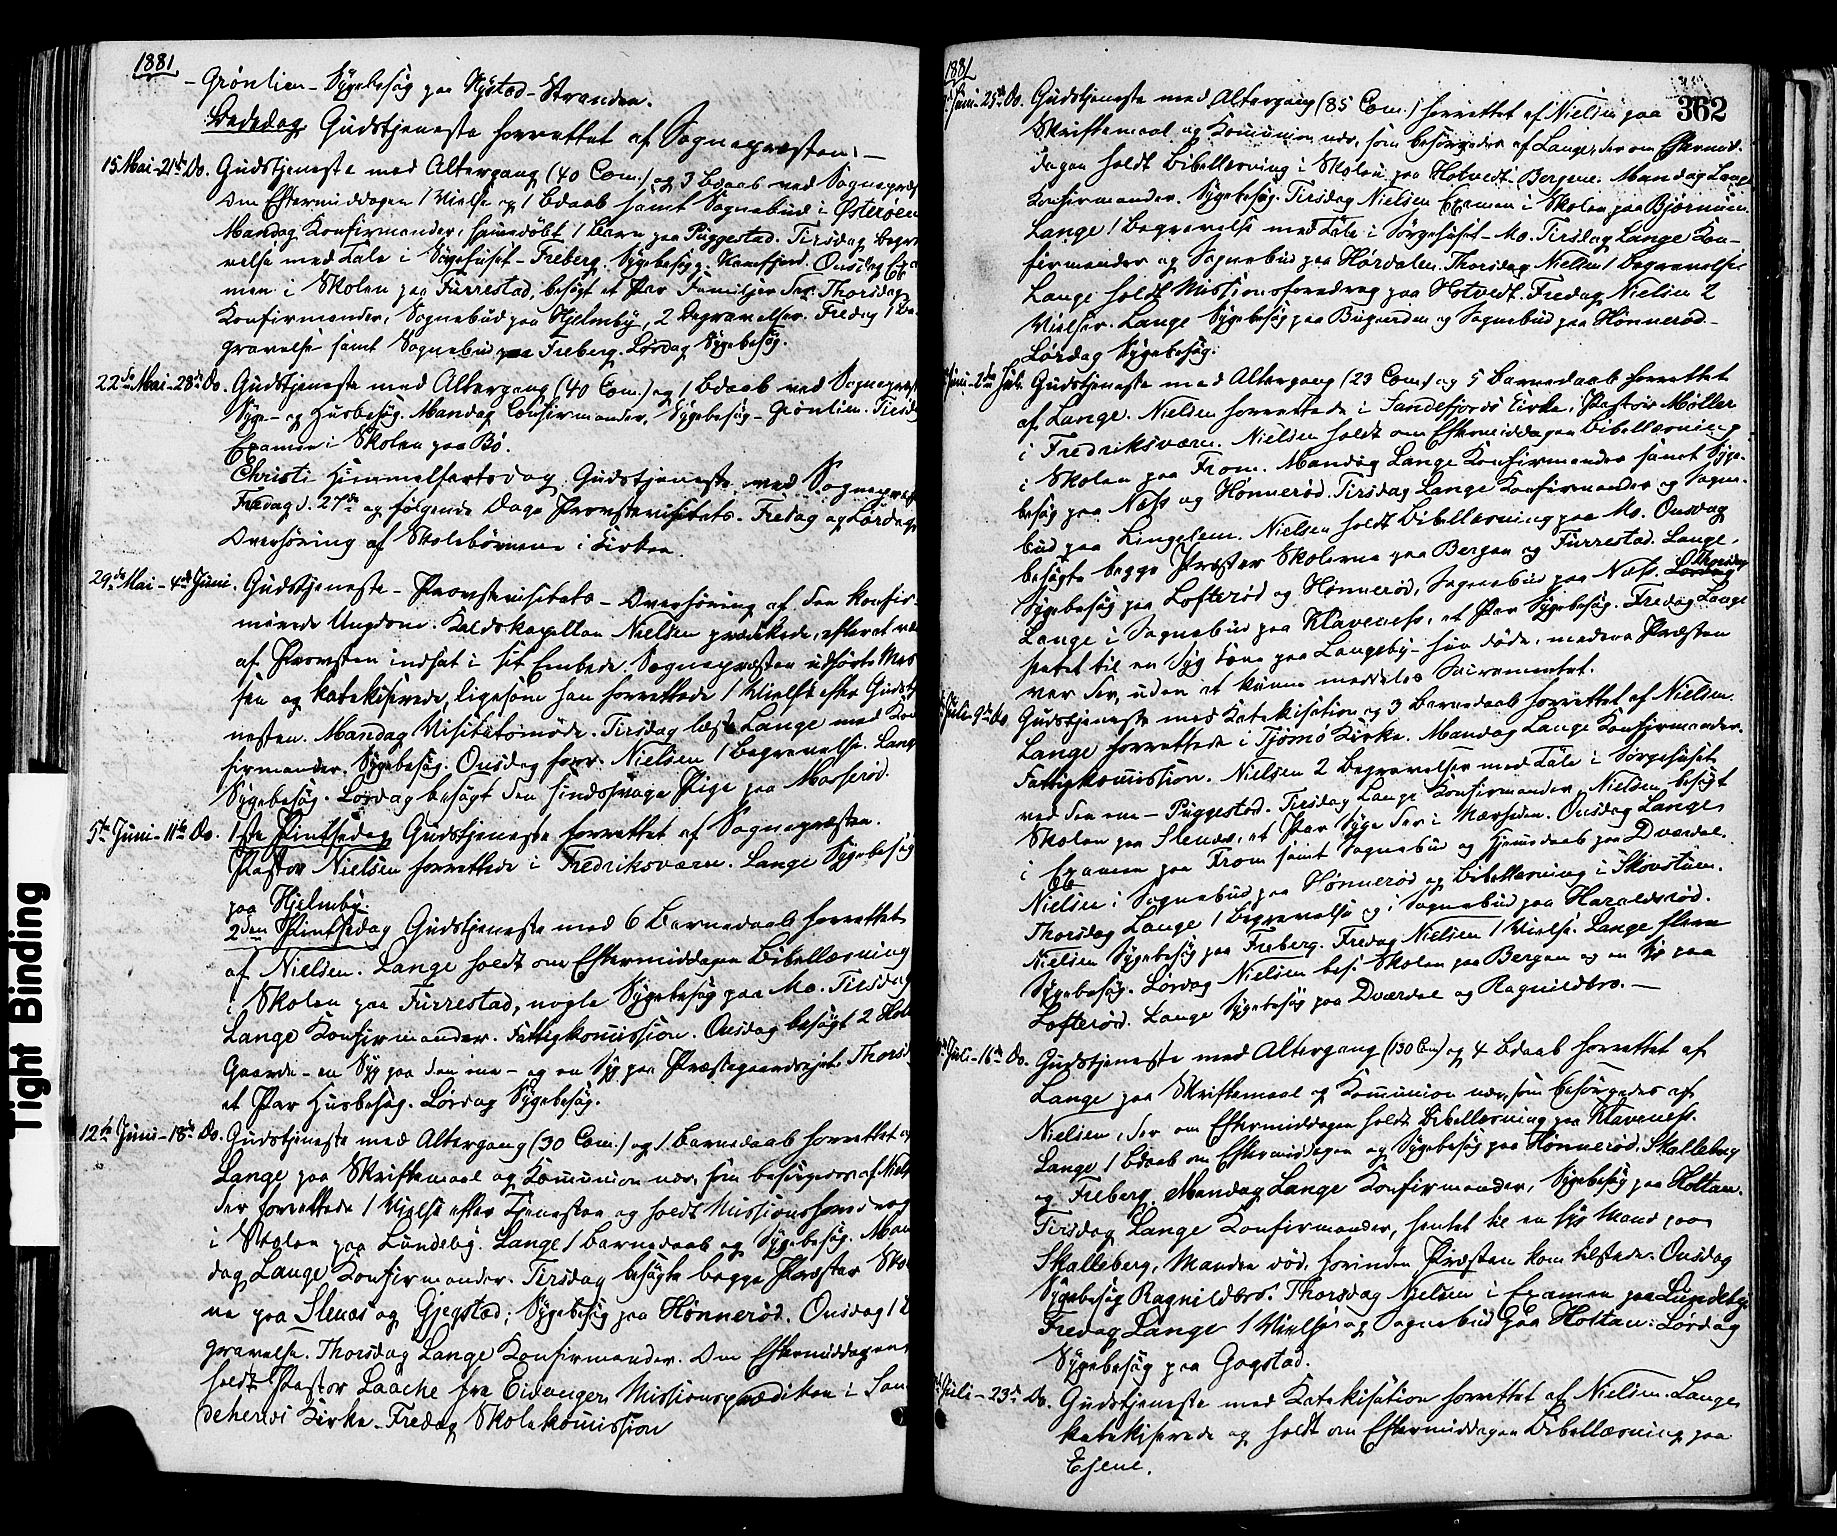 1881
- Grönlien - Sygebesög paa Nystad - Stranden.
Bededag Gudstjeneste forrettet af Sognepræsten. -
15 Mai - 21de Do. Gudstjeneste med Altergang (40 Com.) og 3 Bdaab ved Sognepræs
Om Eftermiddagen 1 Vielse og 1 Bdaab samt Sognebud i Østerøen
Mandag Konfirmander, hjemmedöbt 1 Barn paa Puggestad. Tirsdag Begra
velse med Tale i Sørgehuset - Freberg. Sygebesög - Kamfjord. Onsdag Exa
men i Skolen paa Furrestad, besögt et Par Familjer der. Thorsdag
Konfirmander, Sognebud paa Hjelmby, 2 Begravelser. Fredag 1 Be
gravelse samt Sognebud paa Freberg. Lørdag Sygebesög.
22de Mai - 28de Do. Gudstjeneste med Altergang (40 Com.) og 1 Bdaab ved Sognepræst
Syge- og Husbesög. Mandag Confirmander, Sygebesög - Grönlien. Tirsd
Examen i Skolen paa Bø.
Christi Himmelfartsdag Gudstjeneste ved Sognepræst
Fredag d. 27de og følgende Dage Provstevisitats. Fredag og Lørdag
Overhöring af Skolebörnene i Kirken.
29de Mai - 4de Juni. Gudstjeneste - Provstevisitats - Overhöring af den konfir-
merede Ungdom. Kaldskapellan Nielsen prædikede, efter at være
af Provsten indsat i sit Embede. Sognepræsten udførte Mes
sen og katekiserede, ligesom han forrettede 1 Vielse efter Gudstj
nesten. Mandag Visitatsmöde. Tirsdag læste Lange med Kon
firmander. Sygebesög. Onsdag forr. Nielsen 1 Begravelse. Lange
Sygebesög. Lørdag besögt den sindssvage Pige paa Masserød.
5te Juni - 11te Do. 1ste Pintsedag Gudstjeneste forrettet af Sognepræsten.
Pastor Nielsen forrettede i Fredriksværn. Lange Sygebesög
paa Hjelmby.
2den Pintsedag Gudstjeneste med 6 Barnedaab forrettet
af Nielsen. Lange holdt om Eftermiddagen Bibellæsning
i Skolen paa Furrestad, nogle Sygebesög paa Mo. Tirsdag
Lange Konfirmander. Fattigkomission. Onsdag besögt 2
Gaarde - en Syg paa den ene - og en Syg paa Præstegaardsejet. Thorsd
et Par Husbesög. Lørdag Sygebesög.
12te Juni - 18de Do. Gudstjeneste med Altergang (30 Com.) og 1 Barnedaab forrettet af
Lange paa Skriftemaal og Komunion nær, som besörgedes af Niels
der forrettede 1 Vielse efter Tjenesten og holdt Missionsforedrag
i Skolen paa Lundeby. Lange 1 Barnedaab og Sygebesög. Man
dag Lange Konfirmander. Tirsdag besögte begge Præster Sko
ne paa Stenes og Gjegstad; Sygebesög paa Hønnerød. Onsdag 1 Be
gravelse. Thorsdag Lange Konfirmander. Om Eftermiddagen
holdt Pastor Laache fra Eidanger Missionsprædiken i San
deherreds Kirke. Fredag Skolekomission
1881
362
Juni - 25de Do. Gudstjeneste med Altergang (85 Com.) forrettet af Nielsen paa
Skriftemaal og Komunion nær, som besörgedes af Lange, der om Eftermid-
dagen holdt Bibellæsning i Skolen paa Hotvedt - Bergene. Mandag Lange
Konfirmander. Sygebesög. Tirsdag Nielsen Examen i Skolen paa Bjørnum.
Lange 1 Begravelse med Tale i Sørgehuset - Mo. Tirsdag Lange Kon-
firmander og Sognebud paa Hørdalen. Thorsdag Nielsen 1 Begravelse
Lange holdt Missionsforedrag paa Hotvedt. Fredag Nielsen 2
Vielser. Lange Sygebesög paa Buguerden og Sognebud paa Hønnerød. -
Lørdag Sygebesög.
Juni - 2den Juli. Gudstjeneste med Altergang (23 Com.) og 5 Barnedaab forrettet
af Lange. Nielsen forrettede i Sandefjords Kirke, Pastor Møller
i Fredriksværn. Nielsen holdt om Eftermiddagen Bibellæsning
i Skolen paa From. Mandag Lange Konfirmander samt Syge-
besög paa Næss og Hønnerød. Tirsdag Lange Konfirmander og Sogne-
bud paa Lingelem. Nielsen holdt Bibellæsning paa Mo. Onsdag
besögte begge Præster Skolerne paa Bergan og Furrestad. Lange
Sygebesög paa Lofterød og Hønnerød, Sognebud paa Næss. Thorsdag
Lange i Sognebud paa Klavenes, et Par Sygebesög. Fredag Lange
hentet til en syg Kone paa Langeby - hun døde, medens Præsten
var der, uden at kunne meddeles Sacramentet.
Juli - 9de Do. Gudstjeneste med Katekisation og 3 Barnedaab forrettet af Nielsen.
Lange forrettede i Tjømø Kirke. Mandag Lange Konfirmander.
Fattigkomission. Nielsen 2 Begravelser med Tale i Sørgehuset
ved den ene - Puggestad. Tirsdag Lange Konfirmander, Nielsen besögt
Skolen paa Stenes, et Par Syge der i Nærheden. Onsdag Lange
i Examen paa From samt Sognebud og Hjemmedaab paa Dverdal.
Nielsen i Sognebud paa Hønnerød og Bibellæsning i Skovstuen.
Thorsdag Lange 1 Begravelse og i Sognebud paa Haraldsrød.
Nielsen Sygebesög paa Freberg. Fredag Nielsen 1 Vielse. Lange flere
Sygebesög. Lørdag Nielsen bes. Skolen paa Bergan og en Syg paa
Lofterød. Lange Sygebesög paa Dværdal og Ragnildbro. -
Juli - 16de Do. Gudstjeneste med Altergang (130 Com) og 4 Bdaab forrettet af
Lange paa Skriftemaal og Komunion nær, som besörgedes af
Nielsen, der om Eftermiddagen holdt Bibellæsning paa Klavenes.
Lange 1 Bdaab om Eftermiddagen og Sygebesög paa Hønnerød, Skalleberg
og Freberg. Mandag Lange Konfirmander, Sygebesög paa Holtan.
Tirsdag Lange Konfirmander, hentet til en syg Mand paa
Skalleberg, Manden död, forinden Præsten kom tilstede. Onsdag
Sygebesög Ragnildbro. Thorsdag Nielsen i Examen paa Lundeby
Fredag Lange 1 Vielse og Sognebud paa Holtan. Lørdag
Sygebesög paa Gogstad.
Juli - 23de Do. Gudstjeneste med Katekisation forrettet af Nielsen. Lange
katekiserede og holdt om Eftermiddagen Bibellæsning paa
Ejene.
Tight Binding